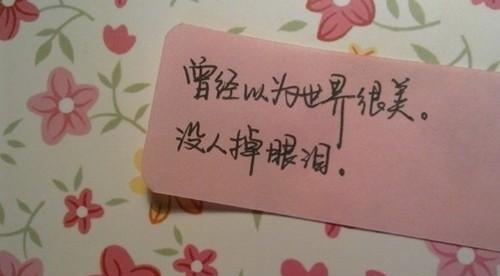 曾经以为世界很美。
没人掉眼泪.